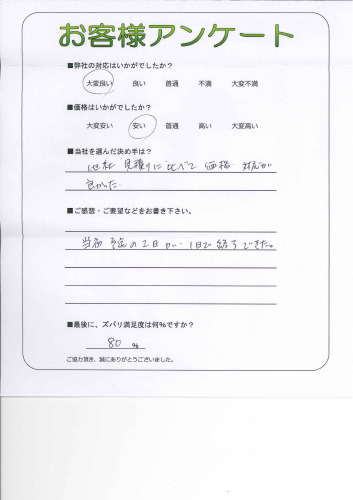 お客様アンケート
■弊社の対応はいかがでしたか?
大変良い 良い 普通 不満 大変不満
■価格はいかがでしたか?
大変安い 安い 普通 高い 大変高い
■当社を選んだ決め手は?
他社 見積りに比べて 価格・対応が
良かった.
■ご感想・ご要望などをお書き下さい。
当初 予定の2日が 1日で終了できた。
■最後に、ズバリ満足度は何%ですか?
80 %
ご協力頂き、誠にありがとうございました。